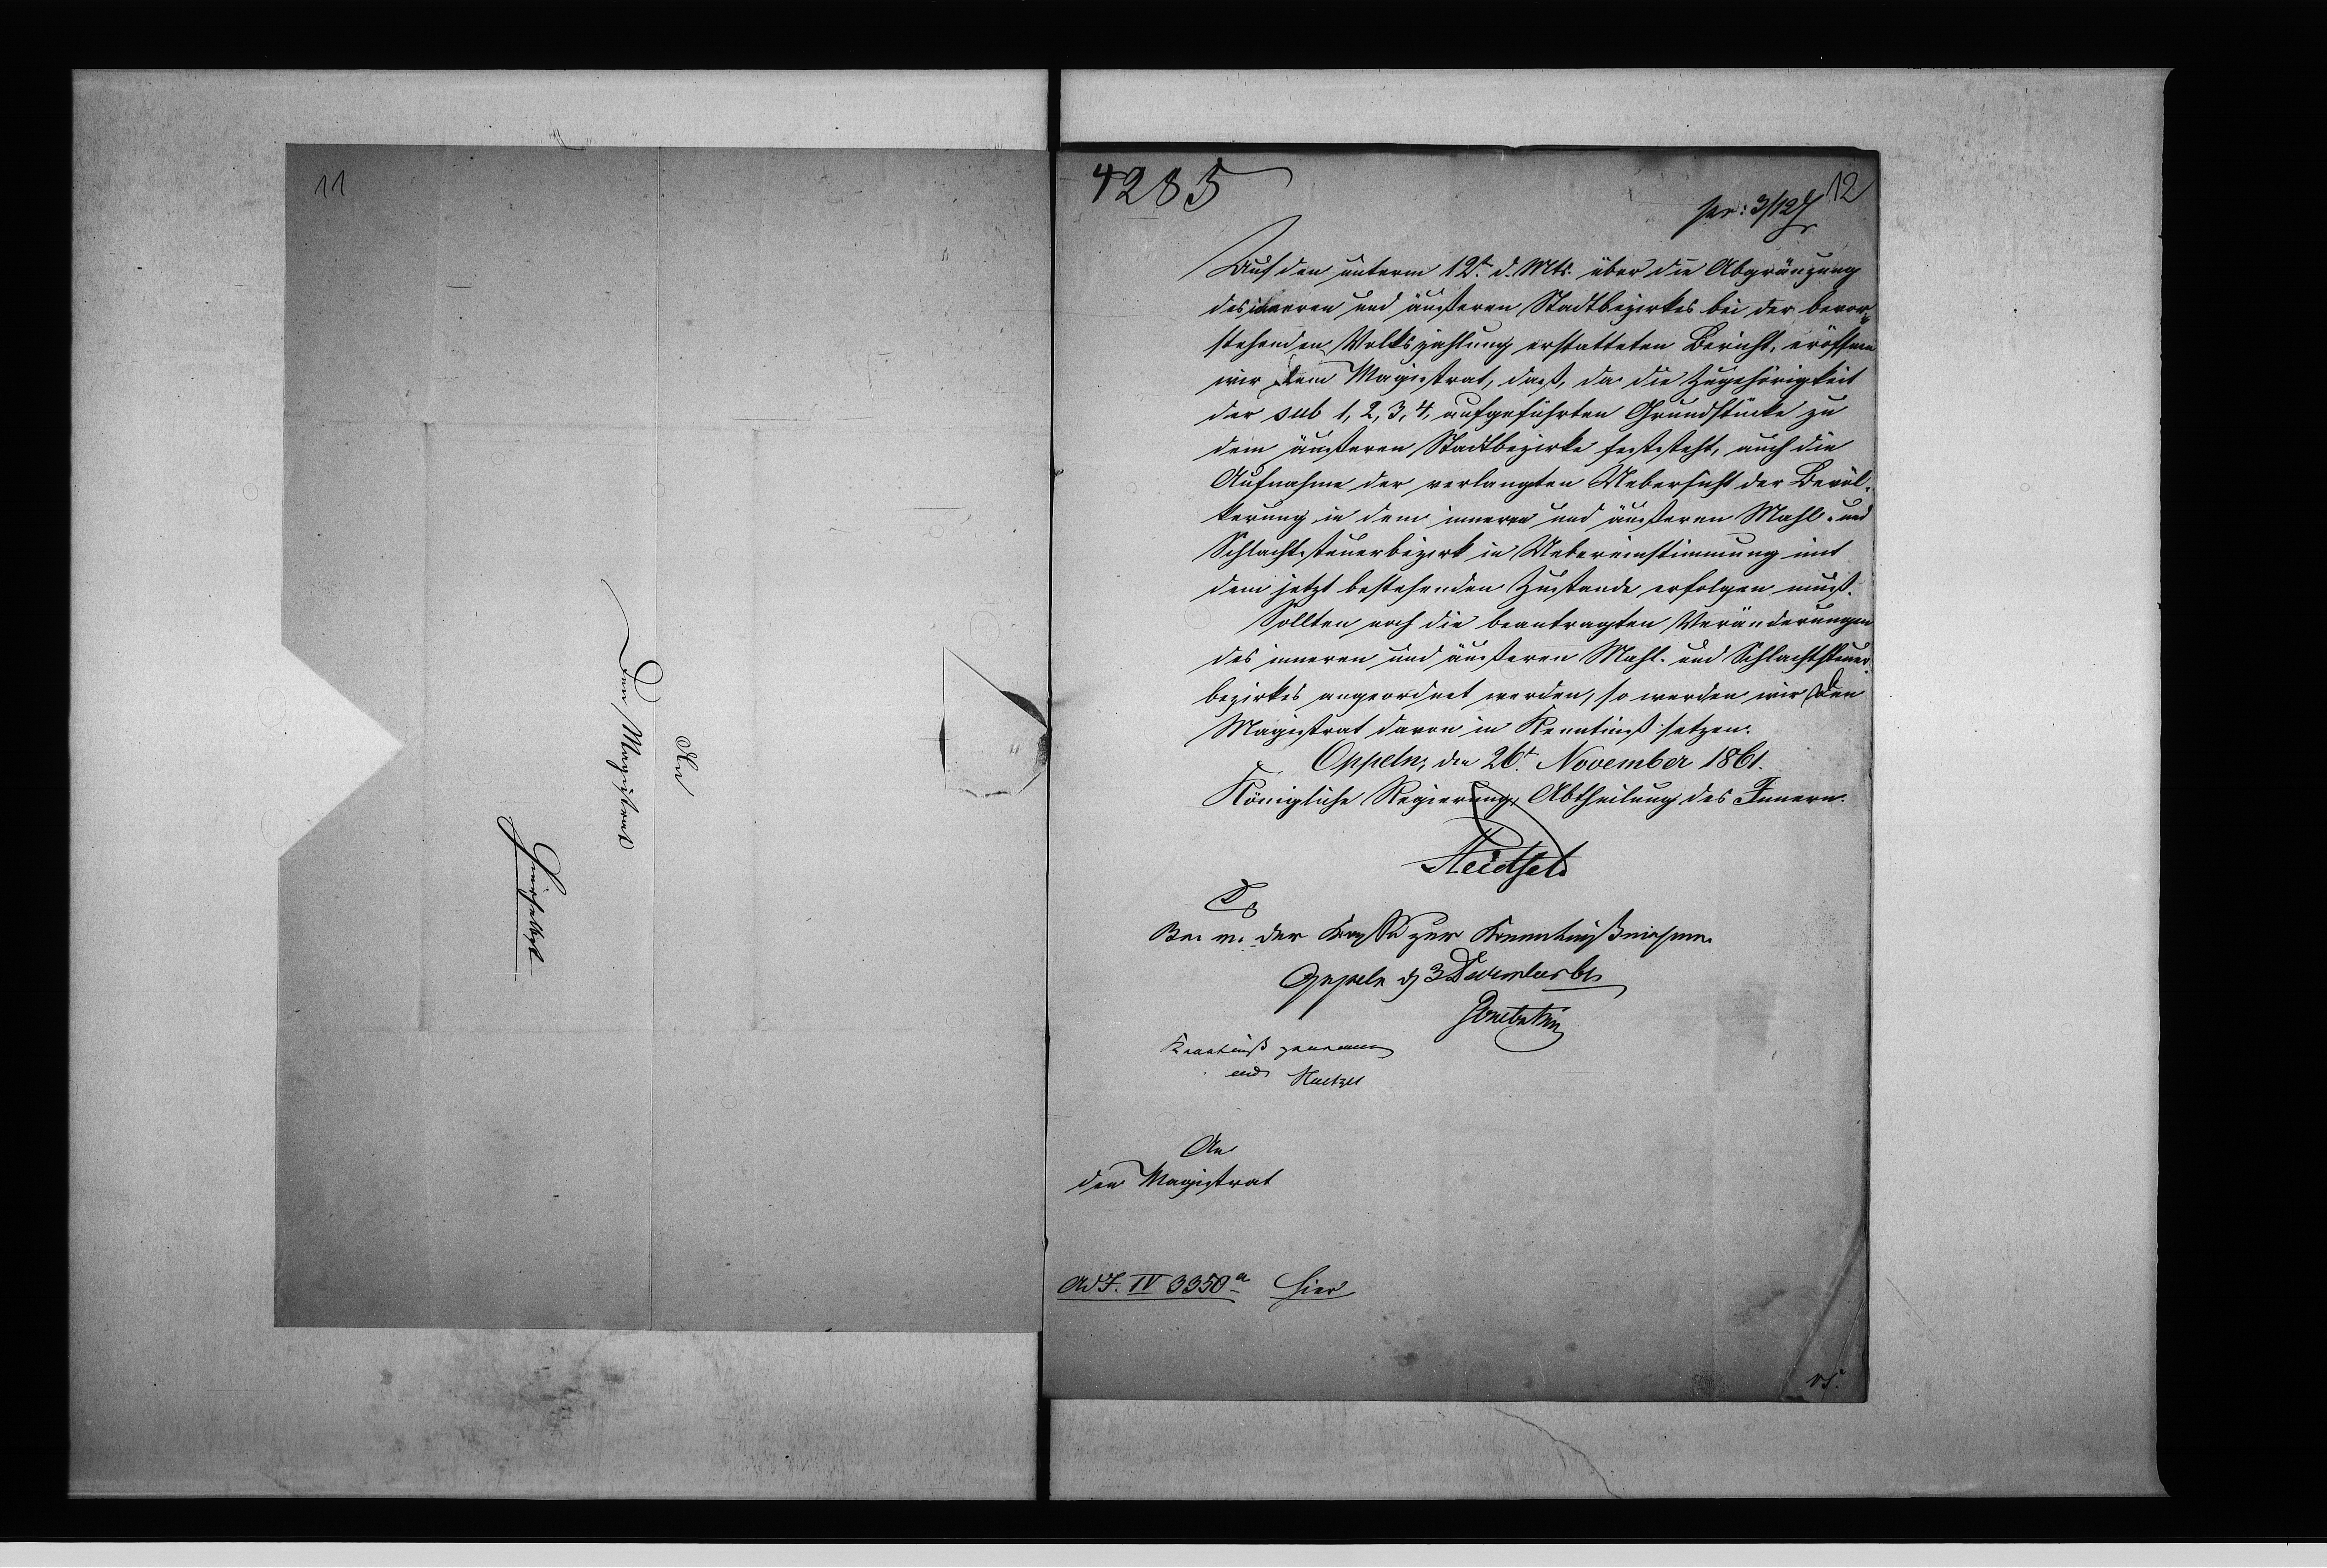 11
An
Den Magistrat
4285
12
pr: 3/12
Auf den unterm 12t. d. Mts. über die Abgränzung
des inneren und äußeren Stadtbezirkes bei der bevor-
stehenden Volkszählung erstatteten Bericht, eröffnen
wir dem Magistrat, daß, da die Zugehörigkeit
der sub 1, 2, 3, 4, aufgeführten Grundstücke zu
dem äußeren Stadtbezirke feststeht, auch die
Aufnahme der verlangten Uebersicht der Bevöl-
kerung in dem inneren und äußeren Mahl- und
Schlachtsteuerbezirk in Uebereinstimmung mit
dem jetzt bestehenden Zustande erfolgen muß.
Sollten noch die beantragten Veränderungen
des inneren und äußeren Mahl- und Schlachtsteuer-
bezirkes angeordnet werden, so werden wir den
Magistrat davon in Kenntniß setzen.
Oppeln, den 26t. November 1861.
Königliche Regierung, Abtheilung des Innern.
der zur Kenntnißnahme
Oppeln d 3 December 61
Kenntniß genommen
An
den Magistrat
ad I. IV 3350 a hier